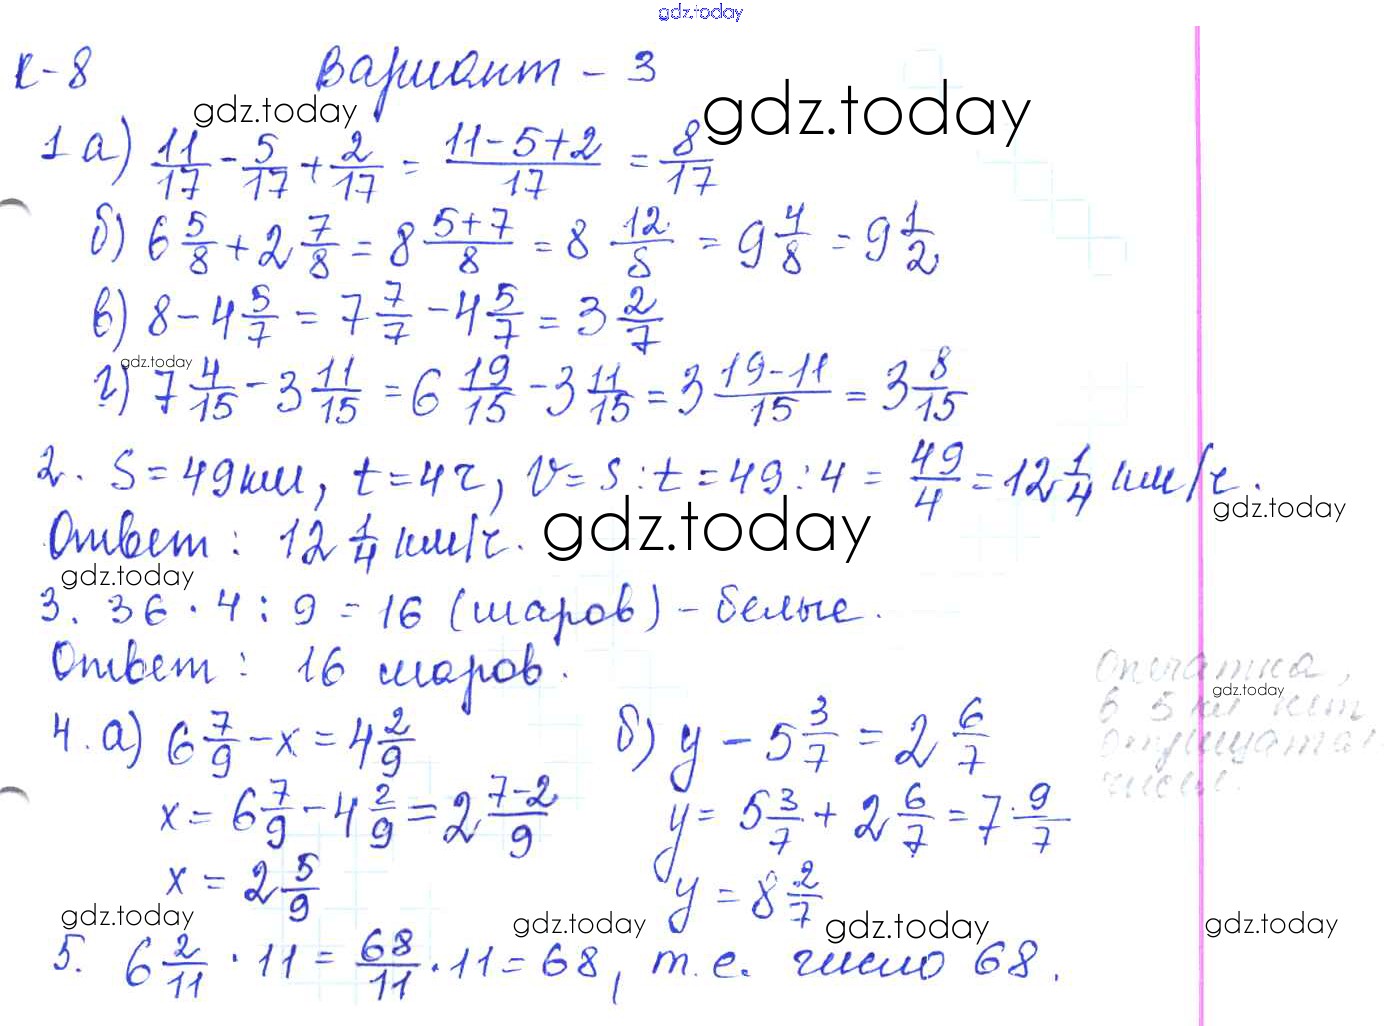 gdz.today
К-8 Вариант - 3
gdz.today gdz.today
1 а) 11/17 - 5/17 + 2/17 = (11-5+2)/17 = 8/17
б) 6 5/8 + 2 7/8 = 8 (5+7)/8 = 8 12/8 = 9 4/8 = 9 1/2
в) 8 - 4 5/7 = 7 7/7 - 4 5/7 = 3 2/7
gdz.today
г) 7 4/15 - 3 11/15 = 6 19/15 - 3 11/15 = 3 (19-11)/15 = 3 8/15
2. S = 49 км, t = 4 ч, V = S : t = 49 : 4 = 49/4 = 12 1/4 км/ч.
gdz.today gdz.today
Ответ: 12 1/4 км/ч.
gdz.today
3. 36 · 4 : 9 = 16 (шаров) - белые.
Ответ: 16 шаров.
Опечатка,
gdz.today
в 5 кл нет
отрицател.
чисел.
4. а) 6 7/9 - x = 4 2/9 б) y - 5 3/7 = 2 6/7
x = 6 7/9 - 4 2/9 = 2 (7-2)/9 y = 5 3/7 + 2 6/7 = 7 9/7
x = 2 5/9 y = 8 2/7
gdz.today gdz.today gdz.today gdz.today
5. 6 2/11 · 11 = 68/11 · 11 = 68, т.е. число 68.